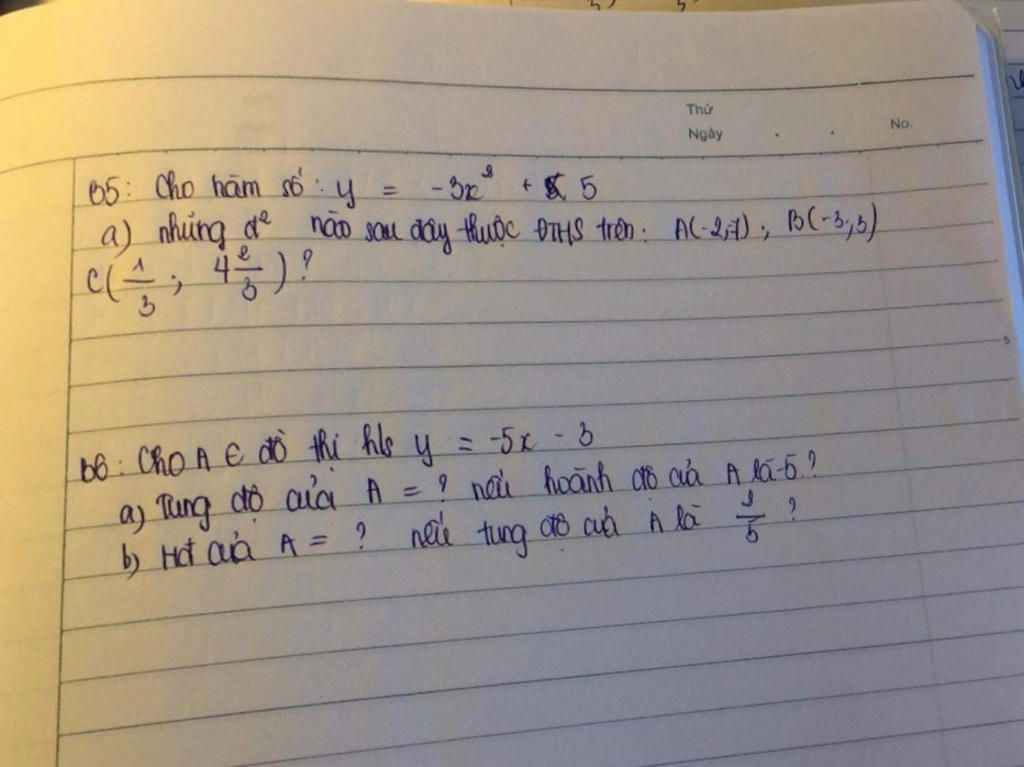 Thứ
Ngày . . No.
B5: Cho hàm số: y = -3x² + 5
a) những đ² nào sau đây thuộc ĐTHS trên: A(-2;-7); B(-3;5)
C(1/3; 4 2/3)?
b6: Cho A ∈ đồ thị h/s y = -5x - 3
a) Tung độ của A = ? nếu hoành độ của A là -5?
b) Hđ của A = ? nếu tung độ của A là 2/5 ?